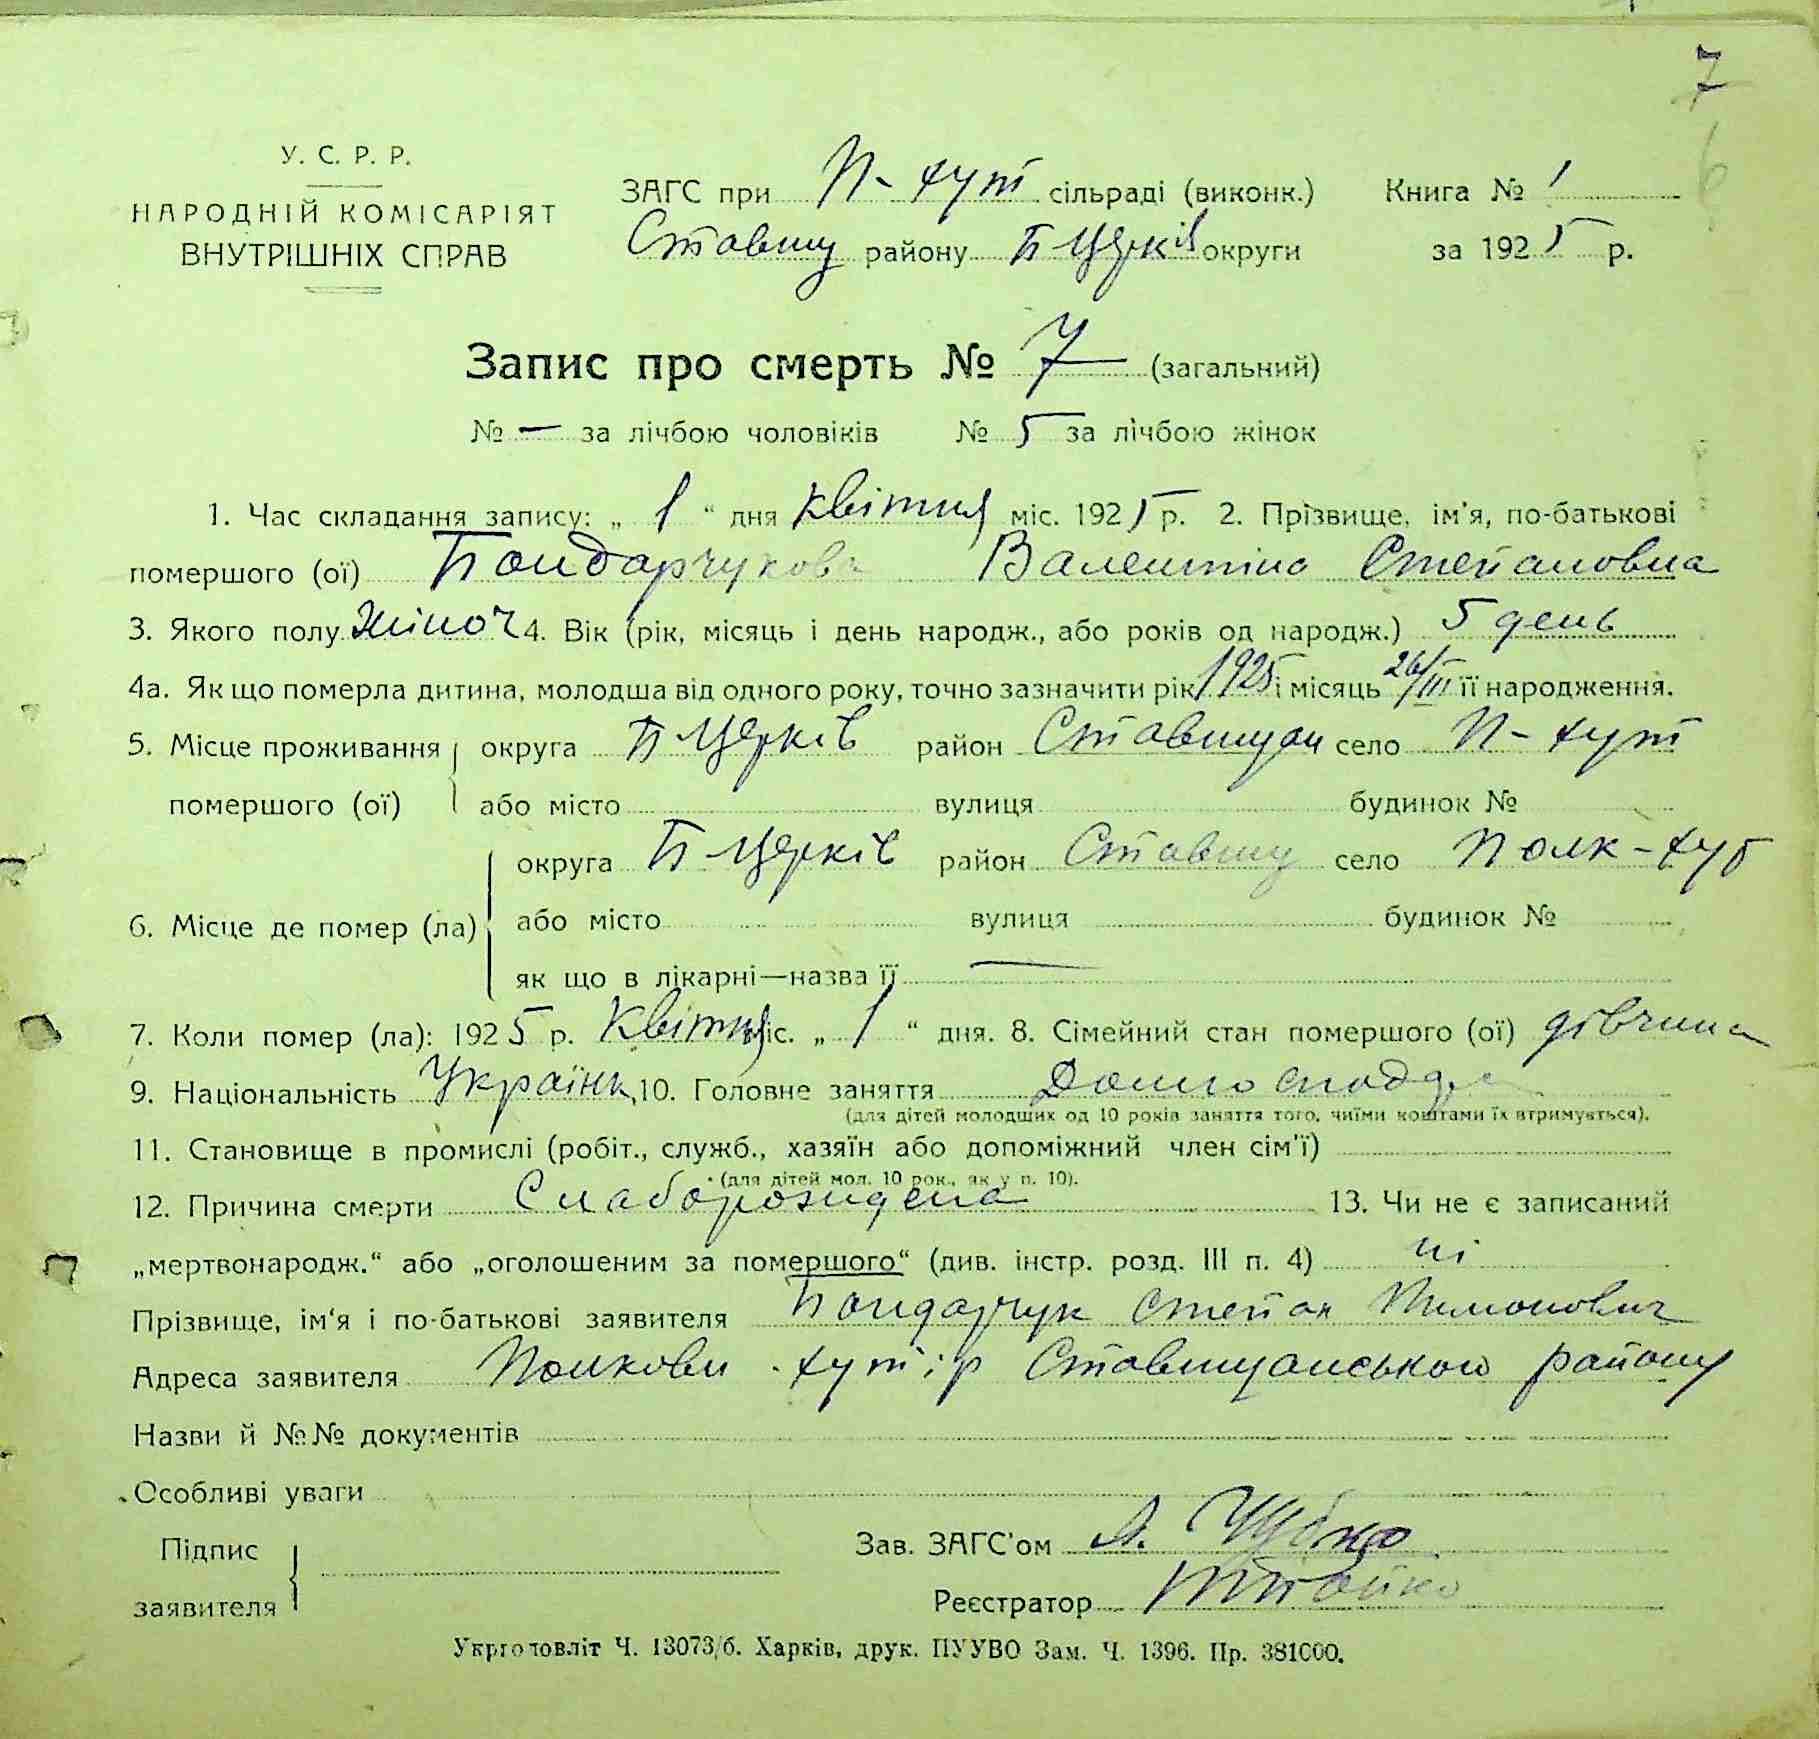 7
6
У. С. Р. Р.
НАРОДНІЙ КОМІСАРІЯТ
ВНУТРІШНІХ СПРАВ
ЗАГС при П-хут сільраді (виконк.) Книга № 1
Ставищ району Б Церків округи за 1925 р.
Запис про смерть № 7 (загальний)
№ — за лічбою чоловіків № 5 за лічбою жінок
1. Час складання запису: „ 1 “ дня Квітня міс. 1925 р. 2. Прізвище, ім'я, по-батькові
помершого (ої) Бондарчукова Валентина Степановна
3. Якого полу Жіноч 4. Вік (рік, місяць і день народж., або років од народж.) 5 день
4а. Як що померла дитина, молодша від одного року, точно зазначити рік 1925 і місяць 26/III її народження.
5. Місце проживання округа Б Церків район Ставищан село П-хут
помершого (ої) або місто вулиця будинок №
округа Б-Церків район Ставищ село Полк-хут
6. Місце де помер (ла) або місто вулиця будинок №
як що в лікарні—назва її —
7. Коли помер (ла): 1925 р. Квітня міс. „ 1 “ дня. 8. Сімейний стан помершого (ої) дівчина
9. Національність Українк 10. Головне заняття
(для дітей молодших од 10 років заняття того, чиїми коштами їх втримується).
11. Становище в промислі (робіт., служб., хазяїн або допоміжний член сім'ї)
(для дітей мол. 10 рок., як у п. 10).
12. Причина смерти Слаборождена 13. Чи не є записаний
„мертвонародж.“ або „оголошеним за помершого“ (див. інстр. розд. III п. 4) ні
Прізвище, ім'я і по-батькові заявителя Бондарчук Степан Тимонович
Адреса заявителя Полкови-хутір Ставищанського району
Назви й №№ документів
Особливі уваги
Підпис
заявителя
Зав. ЗАГС'ом
Реєстратор
Укрголовліт Ч. 13073/б. Харків, друк. ПУУВО Зам. Ч. 1396. Пр. 381000.